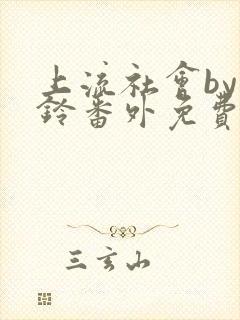 上流社會by
鈴番外免費
三玄山